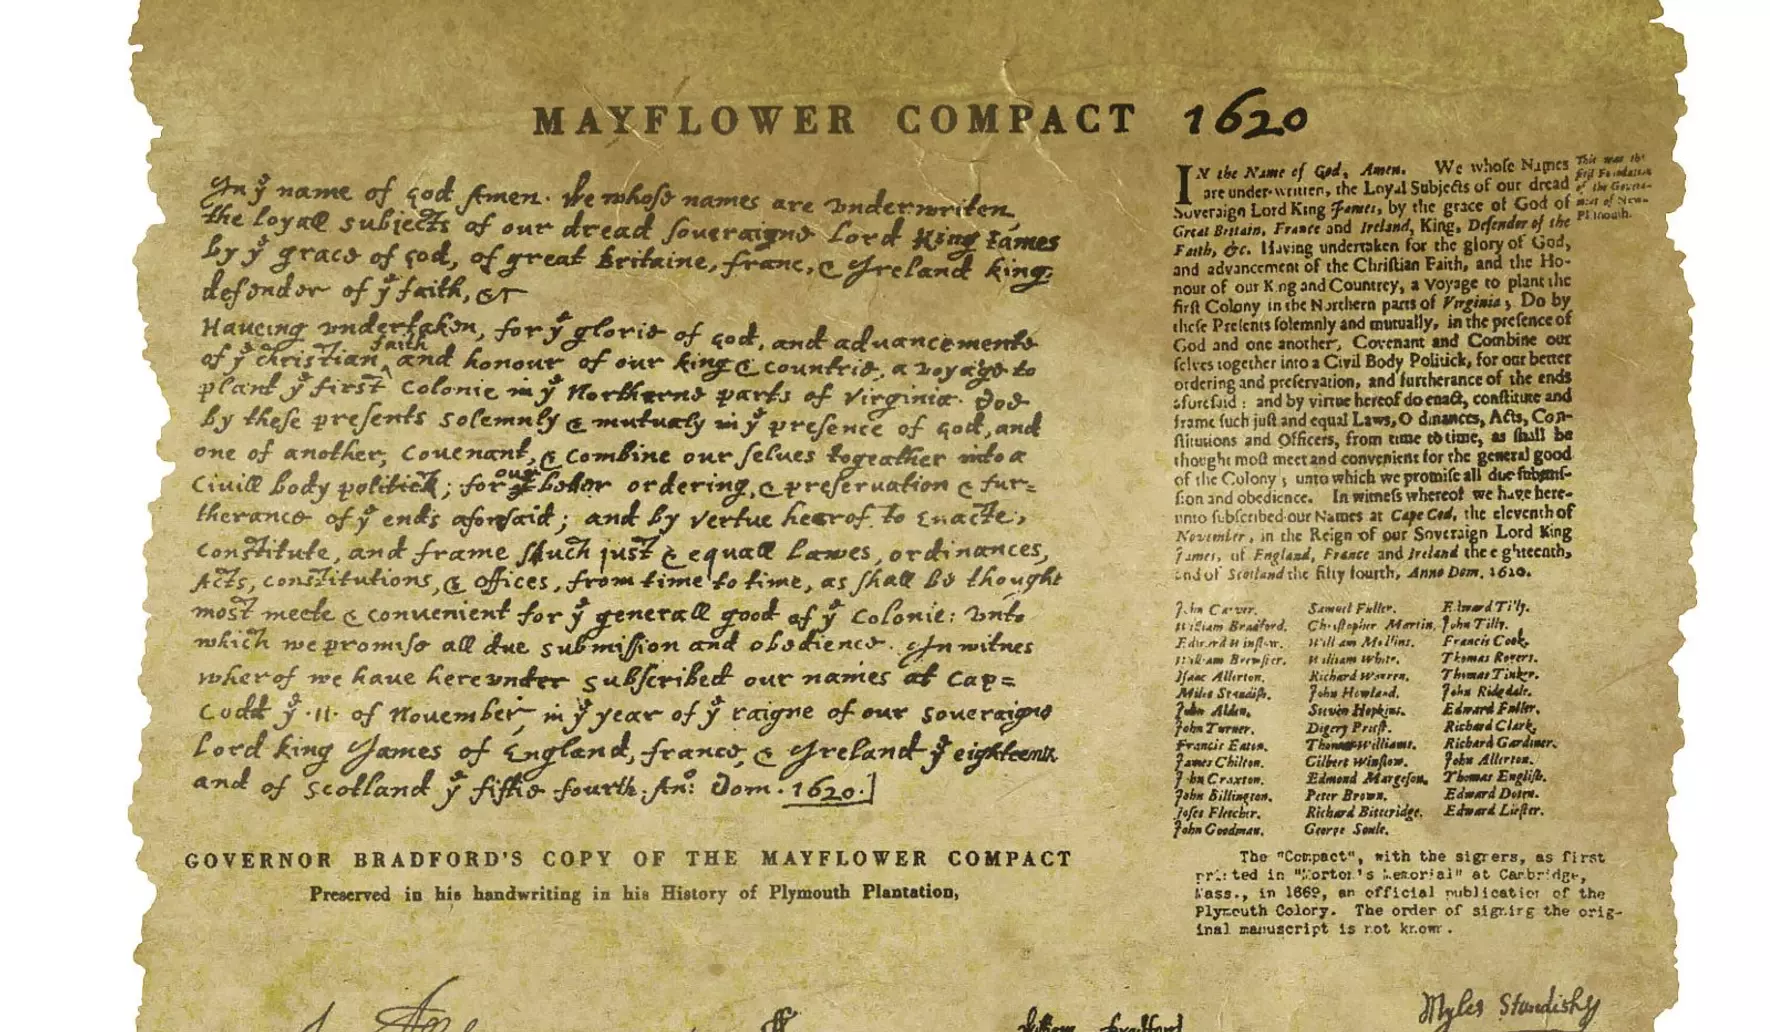 MAYFLOWER COMPACT 1620
In yͤ name of god Amen. We whose names are vnderwriten,
the loyall subjects of our dread soueraigne Lord King Iames
by yͤ grace of god, of great Britaine, franc, & Ireland king,
defender of yͤ faith, &c
Haueing vndertaken, for yͤ glorie of god, and aduancemente
of yͤ christian faith and honour of our king & countrie, a voyage to
plant yͤ first colonie in yͤ Northerne parts of Virginia. Doe
by these presents solemnly & mutualy in yͤ presence of god, and
one of another, couenant, & combine our selues togeather into a
Ciuill body politick; for our better ordering, & preseruation & fur=
therance of yͤ ends aforesaid; and by vertue hearof to Enacte,
constitute, and frame shuch just & equall Lawes, ordinances,
Acts, constitutions, & offices, from time to time, as shall be thought
most meete & conuenient for yͤ generall good of yͤ Colonie: vnto
which we promise all due submission and obedience. In witnes
wherof we have hereunder subscribed our names at Cap=
Codd yͤ .11. of November, in yͤ year of yͤ raigne of our soueraigne
Lord king James of England, france, & Ireland yͤ eighteenth
and of Scotland yͤ fiftie fourth. Anͦ: Dom. 1620.]
GOVERNOR BRADFORD'S COPY OF THE MAYFLOWER COMPACT
Preserved in his handwriting in his History of Plymouth Plantation,
IN the Name of God, Amen. We whose Names
are under-written, the Loyal Subjects of our dread
Soveraign Lord King James, by the grace of God of
Great Britain, France and Ireland, King, Defender of the
Faith, &c. Having undertaken for the glory of God,
and advancement of the Christian Faith, and the Ho-
nour of our King and Countrey, a Voyage to plant the
first Colony in the Northern parts of Virginia; Do by
these Presents solemnly and mutually, in the presence of
God and one another, Covenant and Combine our
selves together into a Civil Body Politick, for our better
ordering and preservation, and furtherance of the ends
aforesaid: and by virtue hereof do enact, constitute and
frame such just and equal Laws, Ordinances, Acts, Con-
stitutions and Officers, from time to time, as shall be
thought most meet and convenient for the general good
of the Colony; unto which we promise all due submis-
sion and obedience. In witness whereof we have here-
unto subscribed our Names at Cape Cod, the eleventh of
November, in the Reign of our Soveraign Lord King
James, of England, France and Ireland the eighteenth,
and of Scotland the fifty fourth, Anno Dom. 1620.
This was the
first Foundation
of the Govern-
ment of New-
Plimouth.
John Carver. Samuel Fuller. Edward Tilly.
William Bradford. Christopher Martin. John Tilly.
Edward Winslow. William Mullins. Francis Cook.
William Brewster. William White. Thomas Rogers.
Isaac Allerton. Richard Warren. Thomas Tinker.
Miles Standish. John Howland. John Ridgdale.
John Alden. Steven Hopkins. Edward Fuller.
John Turner. Digery Priest. Richard Clark.
Francis Eaton. Thomas Williams. Richard Gardiner.
James Chilton. Gilbert Winslow. John Allerton.
John Craxton. Edmond Margeson. Thomas English.
John Billington. Peter Brown. Edward Doten.
Joses Fletcher. Richard Bitteridge. Edward Liester.
John Goodman. George Soule.
The "Compact", with the signers, as first
printed in "Morton's Memorial" at Cambridge,
Mass., in 1669, an official publication of the
Plymouth Colony. The order of signing the orig-
inal manuscript is not known.
Myles Standish
William Bradford